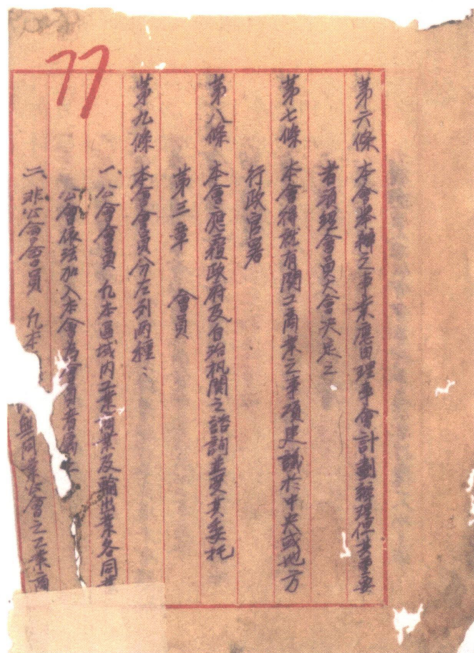 77
第六條 本會興辦之事業應由理事會計劃辦理但其重要
者須經會員大會決定之
第七條 本會得就有關工商業之事項建議於中央或地方
行政官署
第八條 本會應覆政府及自治機關之諮詢並受其委托
第三章 會員
第九條 本會會員分左列兩種：
一、公會會員 凡本區域內工業商業及輸出業各同業
公會依法加入本會為會員者屬之
二、非公會會員 凡本 同業公會之工業商